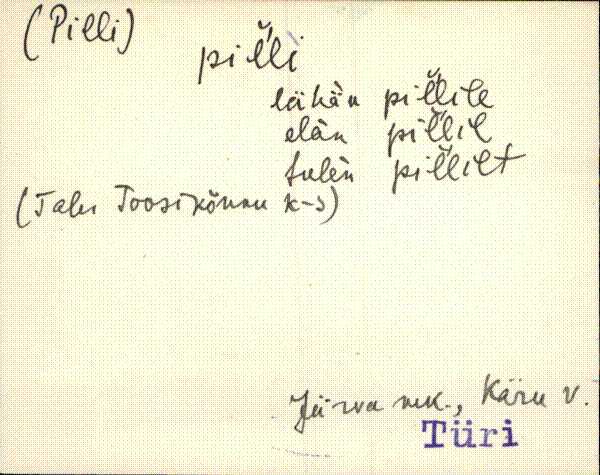 (Pilli)
pil̆li
lähän pil̆lile
elän pil̆lil
tulen pil̆lilt
(Talu Toosikõnnu k-s)
Järva mk., Käru v.
Türi